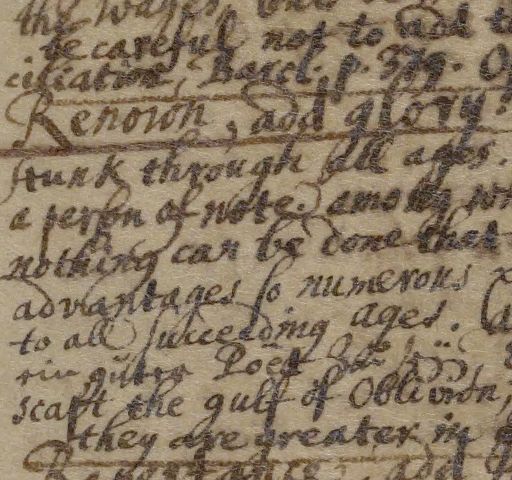 the wages,
be careful not to add t
ciliation, Barcl. p. 379. O
Renown, add glory.
stunk through all ages.
a person of note. among
nothing can be done that
advantages so numerous
to all succeeding ages.
Poët
scapt the gulf of Oblivion,
they are greater in
add